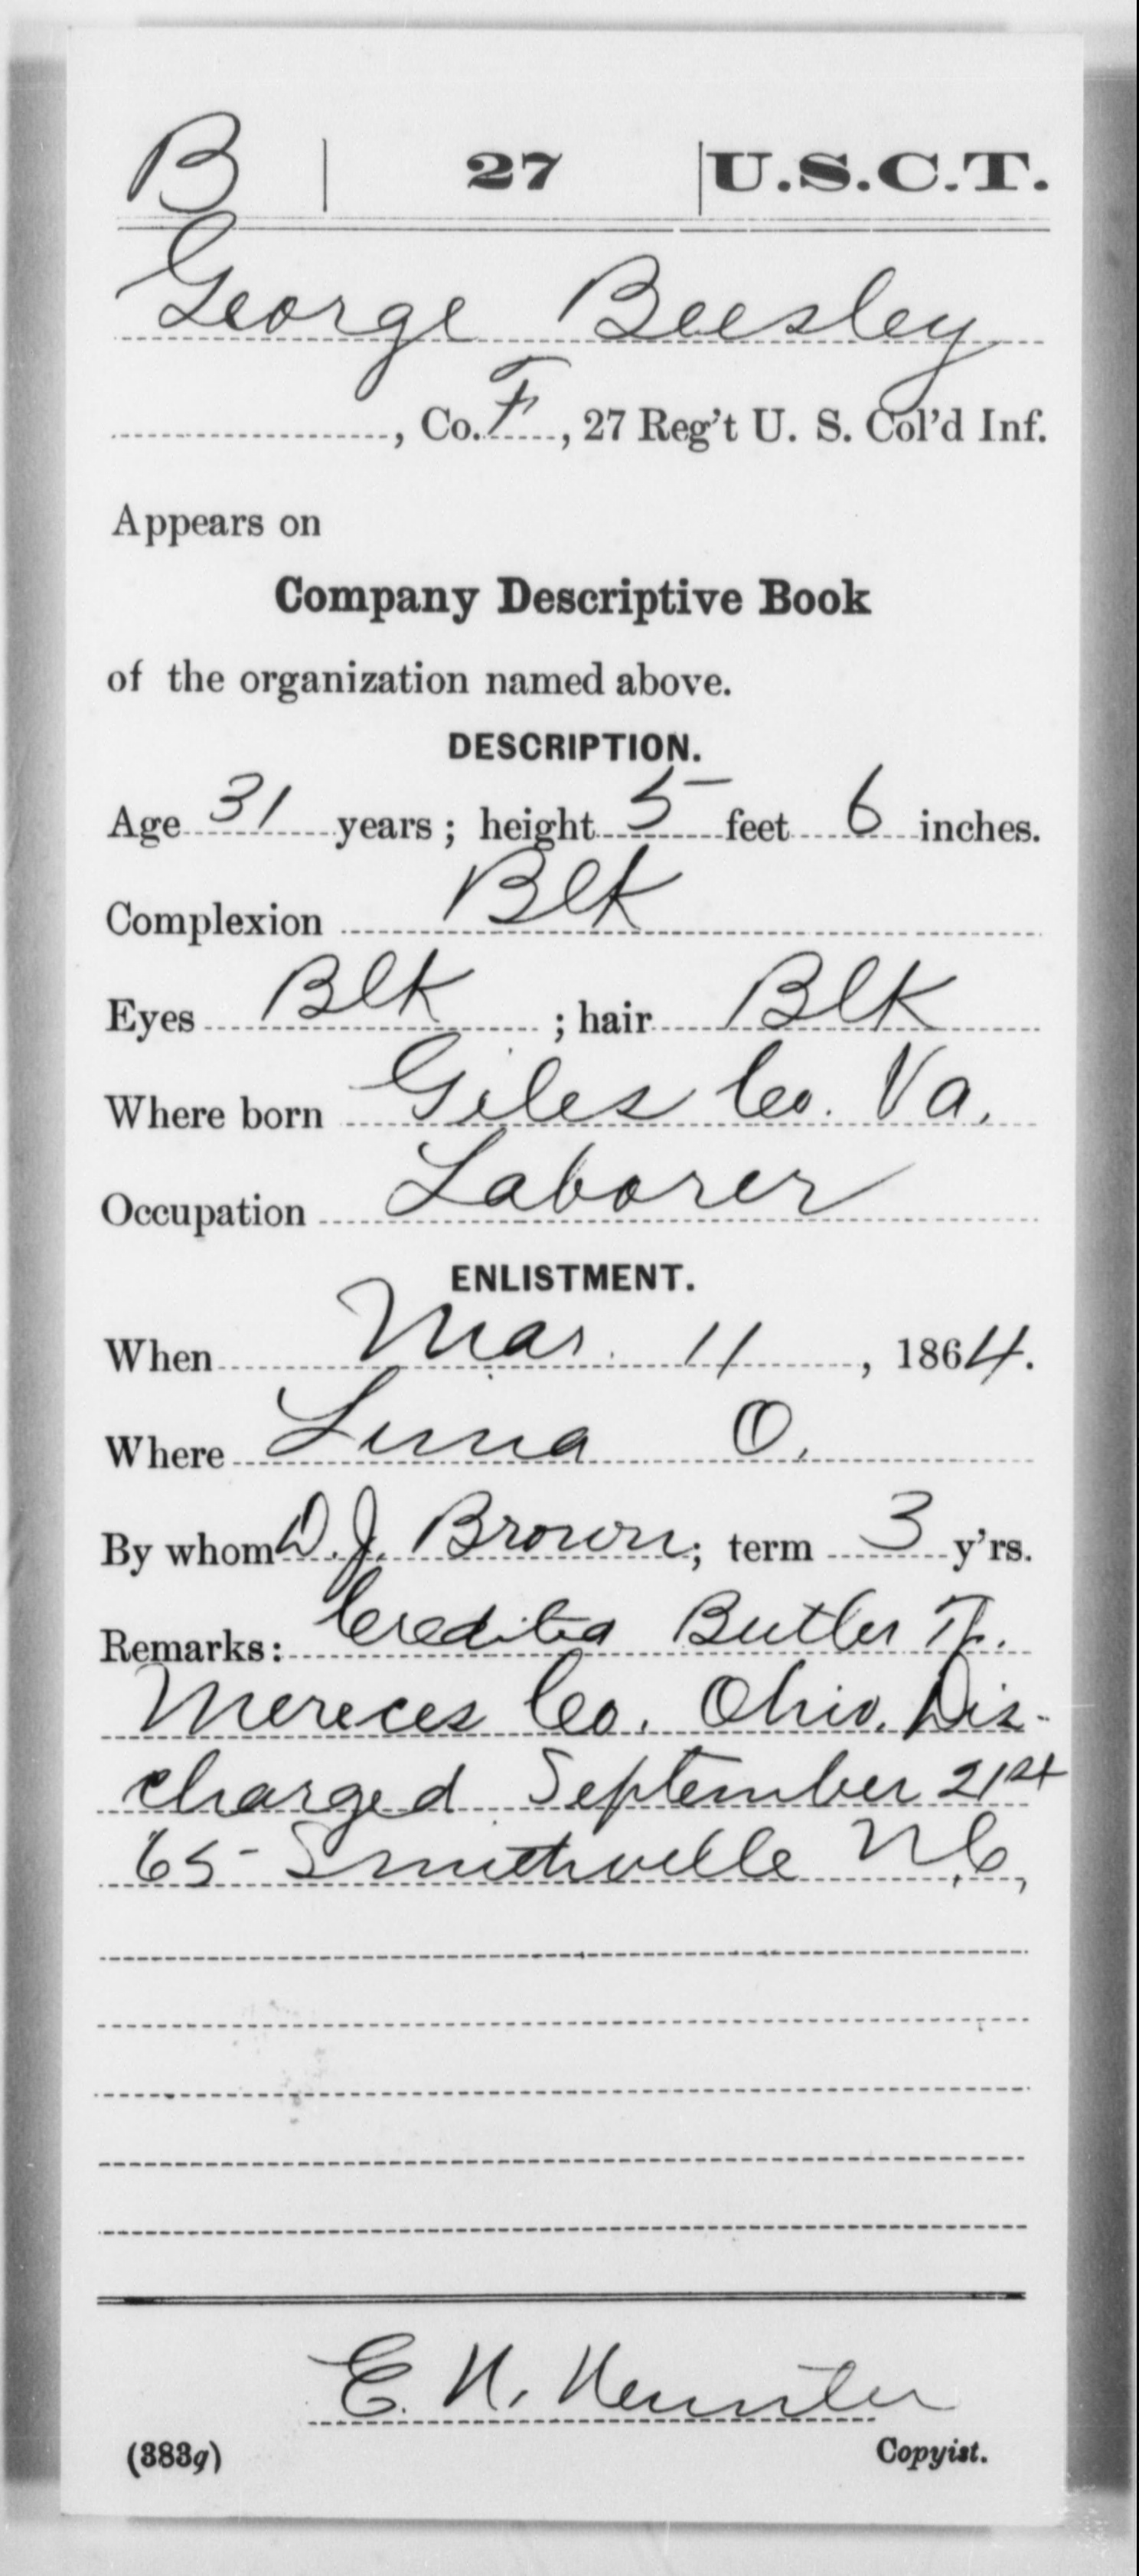 B | 27 | U.S.C.T.
George Beesley
, Co. F, 27 Reg't U. S. Col'd Inf.
Appears on
Company Descriptive Book
of the organization named above.
DESCRIPTION.
Age 31 years; height 5 feet 6 inches.
Complexion Blk
Eyes Blk ; hair Blk
Where born Giles Co. Va.
Occupation Laborer
ENLISTMENT.
When Mar. 11, 1864.
Where Lima O.
By whom D. J. Brown; term 3 y'rs.
Remarks: Credited Butler Tp.
Co. Ohio. Dis-
charged September 21st
65 Smithville N.C,
E. N.
(383g) Copyist.